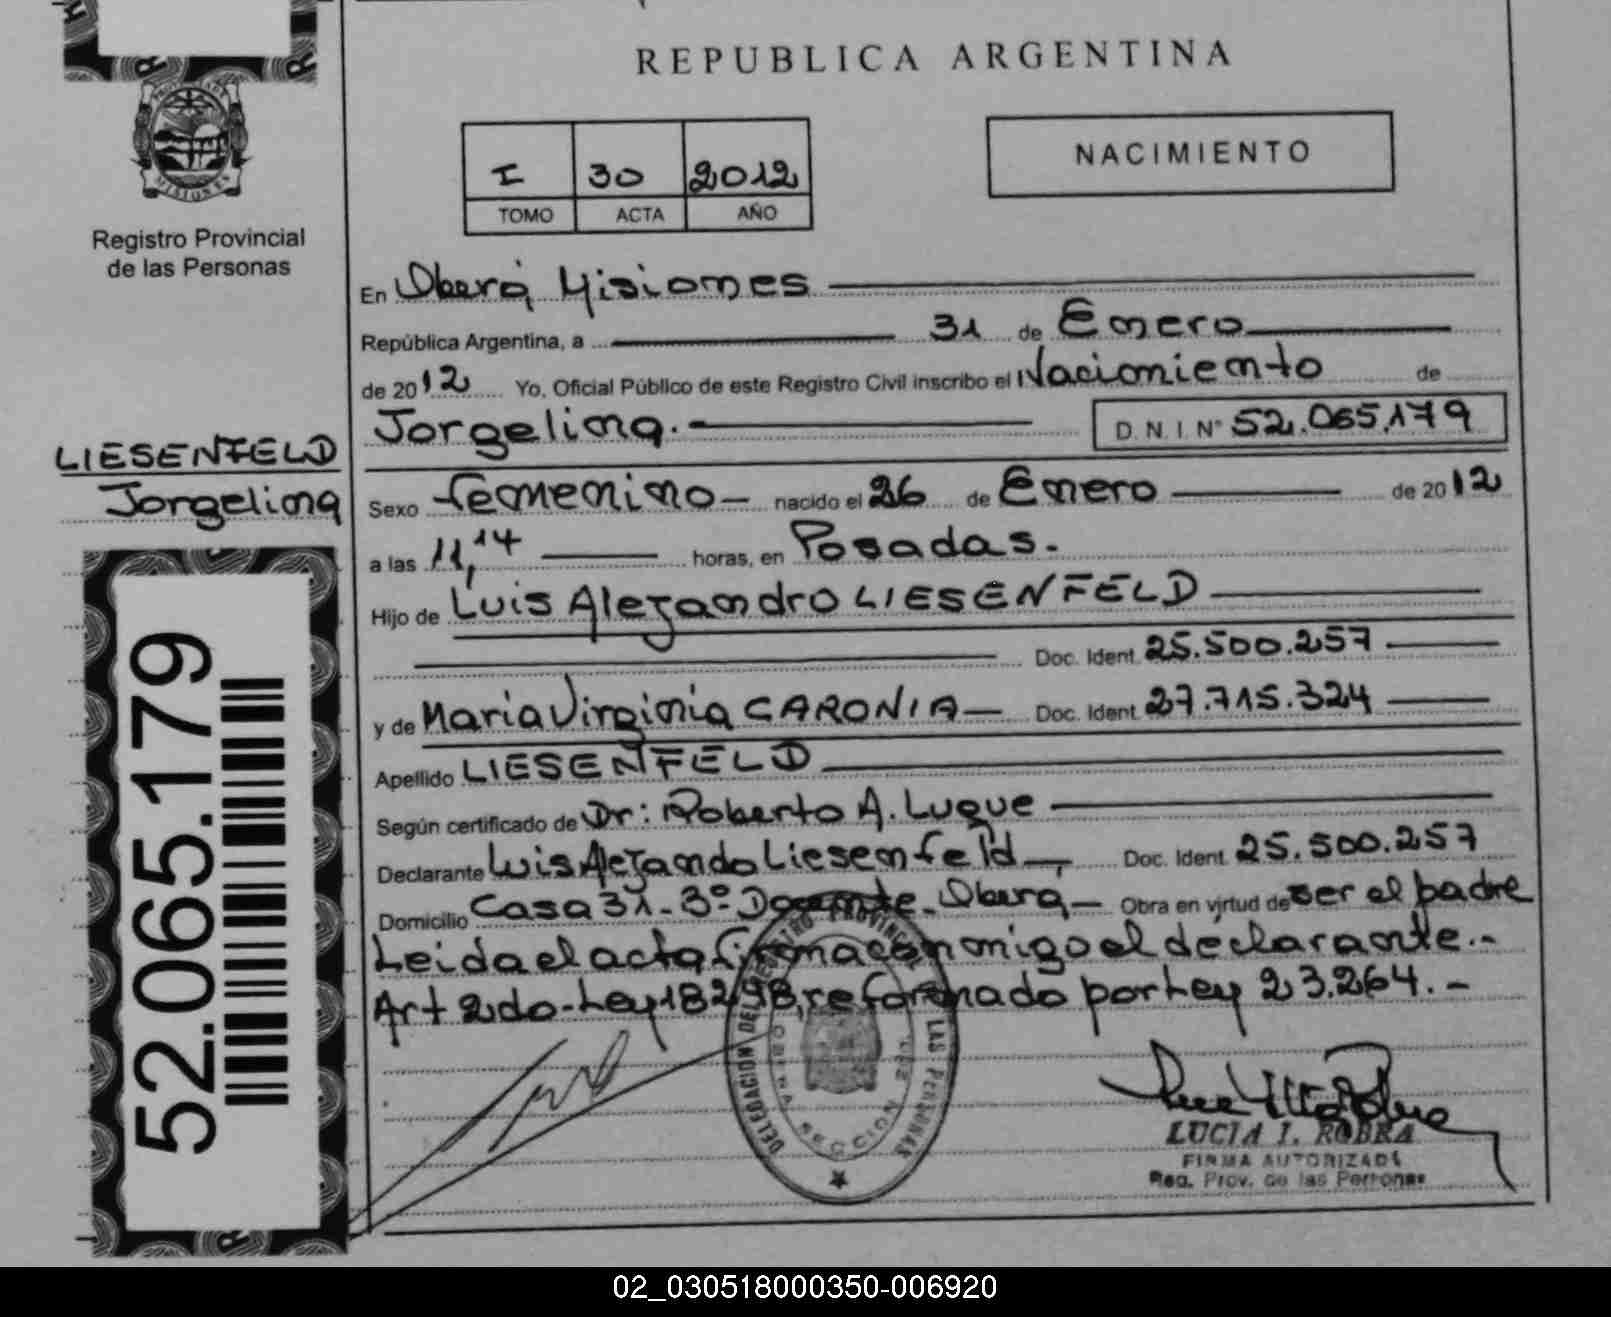 REPUBLICA ARGENTINA
I 30 2012
TOMO ACTA AÑO
NACIMIENTO
MISIONES
Registro Provincial
de las Personas
En Oberá Misiones
República Argentina, a 31 de Enero
de 2012 Yo, Oficial Público de este Registro Civil inscribo el Nacimiento de
Jorgelina. D.N.I. Nº 52.065.179
LIESENFELD
Jorgelina
Sexo femenino nacido el 26 de Enero de 2012
a las 11,14 horas, en Posadas.
Hijo de Luis Alejandro LIESENFELD
Doc. Ident. 25.500.257
y de Maria Virginia CARONIA Doc. Ident. 27.715.324
Apellido LIESENFELD
Según certificado de Dr: Roberto A. Luque
Declarante Luis Alejando Liesenfeld Doc. Ident. 25.500.257
Domicilio Casa 31-3º Docente-Oberá Obra en virtud de ser el padre
Leida el acta firma conmigo el declarante.-
Art 2do-Ley 18298, reformado por Ley 23.264.-
52.065.179
DELEGACION DEL REGISTRO PROVINCIAL DE LAS PERSONAS
SECCION
LUCIA I. ROBRA
FIRMA AUTORIZADA
Reg. Prov. de las Personas
02_030518000350-006920